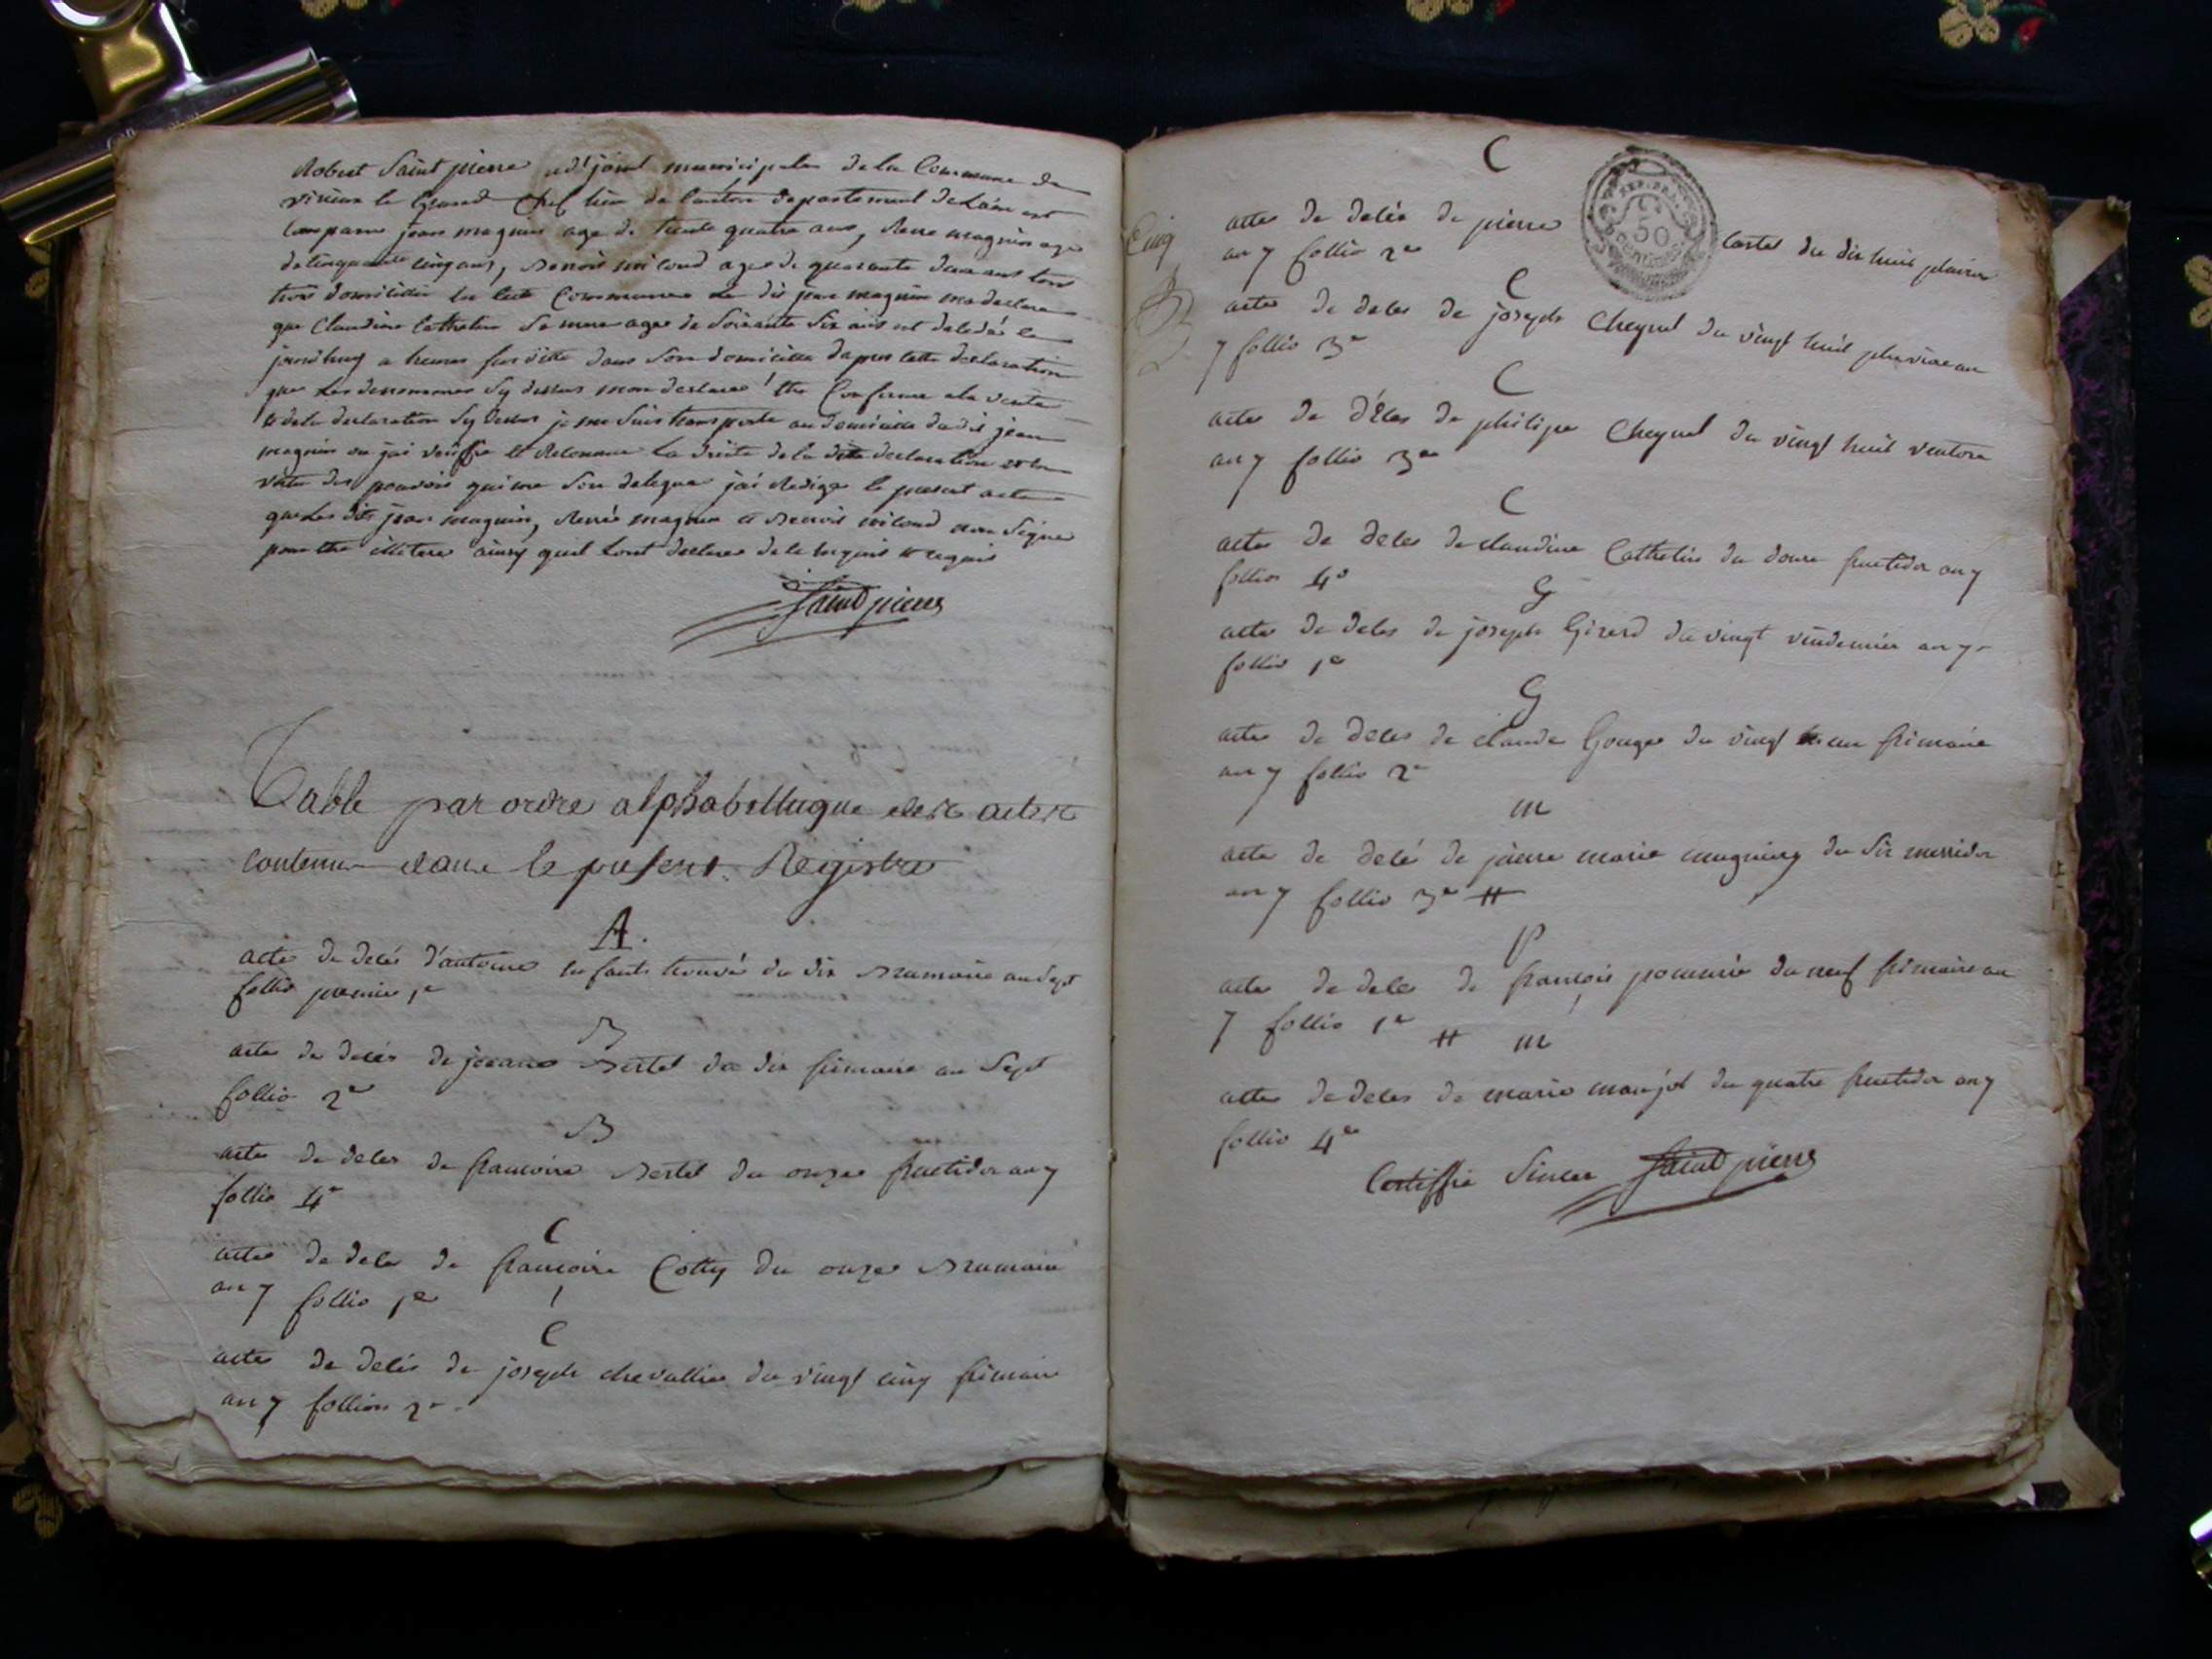 Robert Saint pierre adjoint municipale de la Commune de
virieux le Grand Chef lieu de Canton departement de Lain est
Comparus jean magnin age de trente quatre ans, Rene magnin age
de cinquante cinq ans, Benoit milloud age de quarante deux ans tous
trois domiciliée en cete Commune Le dit jean magnin ma declare
que Claudine Cathelin Sa mere agee de Soixante Six ans est decedée le
a heures dans Son domicille dapres cette declaration
que Les denommes Sy dessus mon declare thre Conforme a la verite
et de la declaration Sy dessus je me suis transporte au domicille du dit jean
magnin ou jai veriffie et Reconnue La dite declaration et en
vertu des pouvoirs qui me Son delegue jai Redige le present acte
que Les dits jean magnin, Rene magnin et Benoit milloud non Signe
pour thre illitere ainsy quil Lont declare de le enquis et requis
Saint pierre
Table par ordre alphabettique des actes
contenu dans le present Registre
A.
acte de decés d'antoine enfants trouvé du dix Brumaire an Sept
follio premier 1er
B
acte de decés de jeanne Bertet du dix frimaire an Sept
follio 2e
B
acte de deces de francoise Bertet du onze fructidor an 7
follio 4e
C
acte de dece de francoise Cotty du onze Brumaire
an 7 follio 1er
C
acte de decés de joseph chevallier du vingt cinq frimaire
an 7 follion 2e
Cinq
C
REP. FRA.
50
acte de decés de pierre Cartet du dix huit pluviose
an 7 follio 2e
C
acte de deces de joseph Cheynel du vingt huit pluviose an
7 follio 3e
C
acte de déces de philipe Cheynel du vingt huit ventose
an 7 follio 3e
C
acte de deces de claudine Cathelin du douze fructidor an 7
follion 4e
G
acte de deces de joseph Girerd du vingt vendemier an 7
follio 1er
G
acte de deces de claude Gouge du vingt frimaire
an 7 follio 2e
m
acte de decé de pierre marie magning du Six messidor
an 7 follio 3e #
P
acte de deces de françois du neuf frimaire an
7 follio 1er
# m
acte de deces de marie du quatre fructidor an 7
follio 4e
Certiffie Sincer Saint pierre